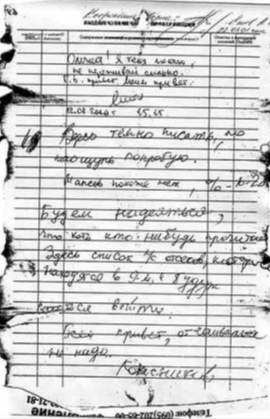 Олечка! Я тебя люблю,
не переживай сильно.
Г.С. привет. Моим привет.
Митя
12.08.2000г 15.45.
Здесь темно писать, но
наощупь попробую.
Шансов похоже нет, %  10-20
Будем надеяться,
что хоть кто-нибудь прочитает
Здесь список л/с отсеков, которые
находятся в 9-м и будут
пытаться выйти.
Всем привет, отчаиваться
не надо.
Колесников
Телефон: (095)